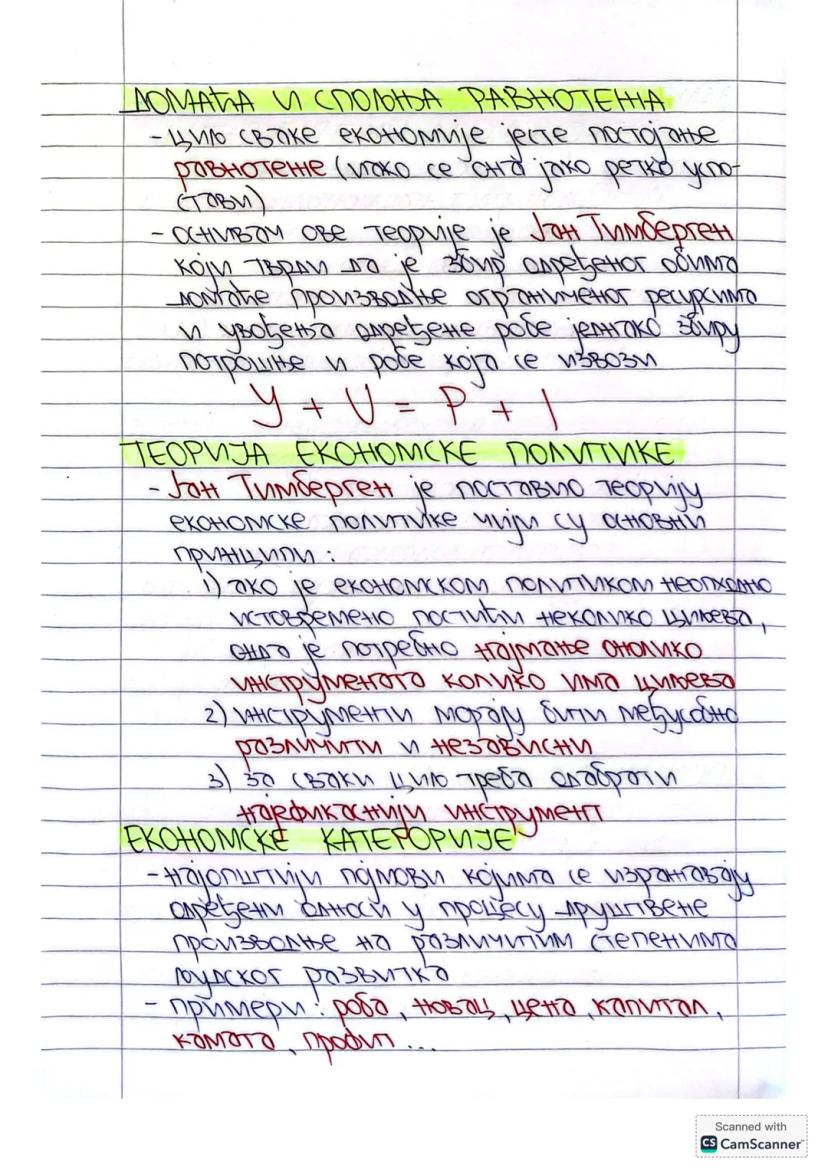 ДОМАЋА И СПОЉЊА РАВНОТЕЖА
- циљ сваке економије јесте постојање
равнотеже (иако се она јако ретко успо-
стави)
- оснивач ове теорије је Јан Тимберген
који тврди да је збир одређеног обима
домаће производње ограниченог ресурсима
и увођења одређене робе једнако збиру
потрошње и робе која се извози
У + U = P + I
ТЕОРИЈА ЕКОНОМСКЕ ПОЛИТИКЕ
- Јан Тимберген је поставио теорију
економске политике чији су основни
принципи :
1) ако је економском политиком неопходно
истовремено постићи неколико циљева,
онда је потребно најмање онолико
инструмената колико има циљева
2) инструменти морају бити међусобно
различити и независни
3) за сваки циљ треба одабрати
најефикаснији инструмент
ЕКОНОМСКЕ КАТЕГОРИЈЕ
- најопштији појмови којима се изражавају
одређени односи у процесу друштвене
производње на различитим степенима
људског развитка
- примери : роба, новац, цена, капитал,
камата, профит ...
Scanned with
CS CamScanner